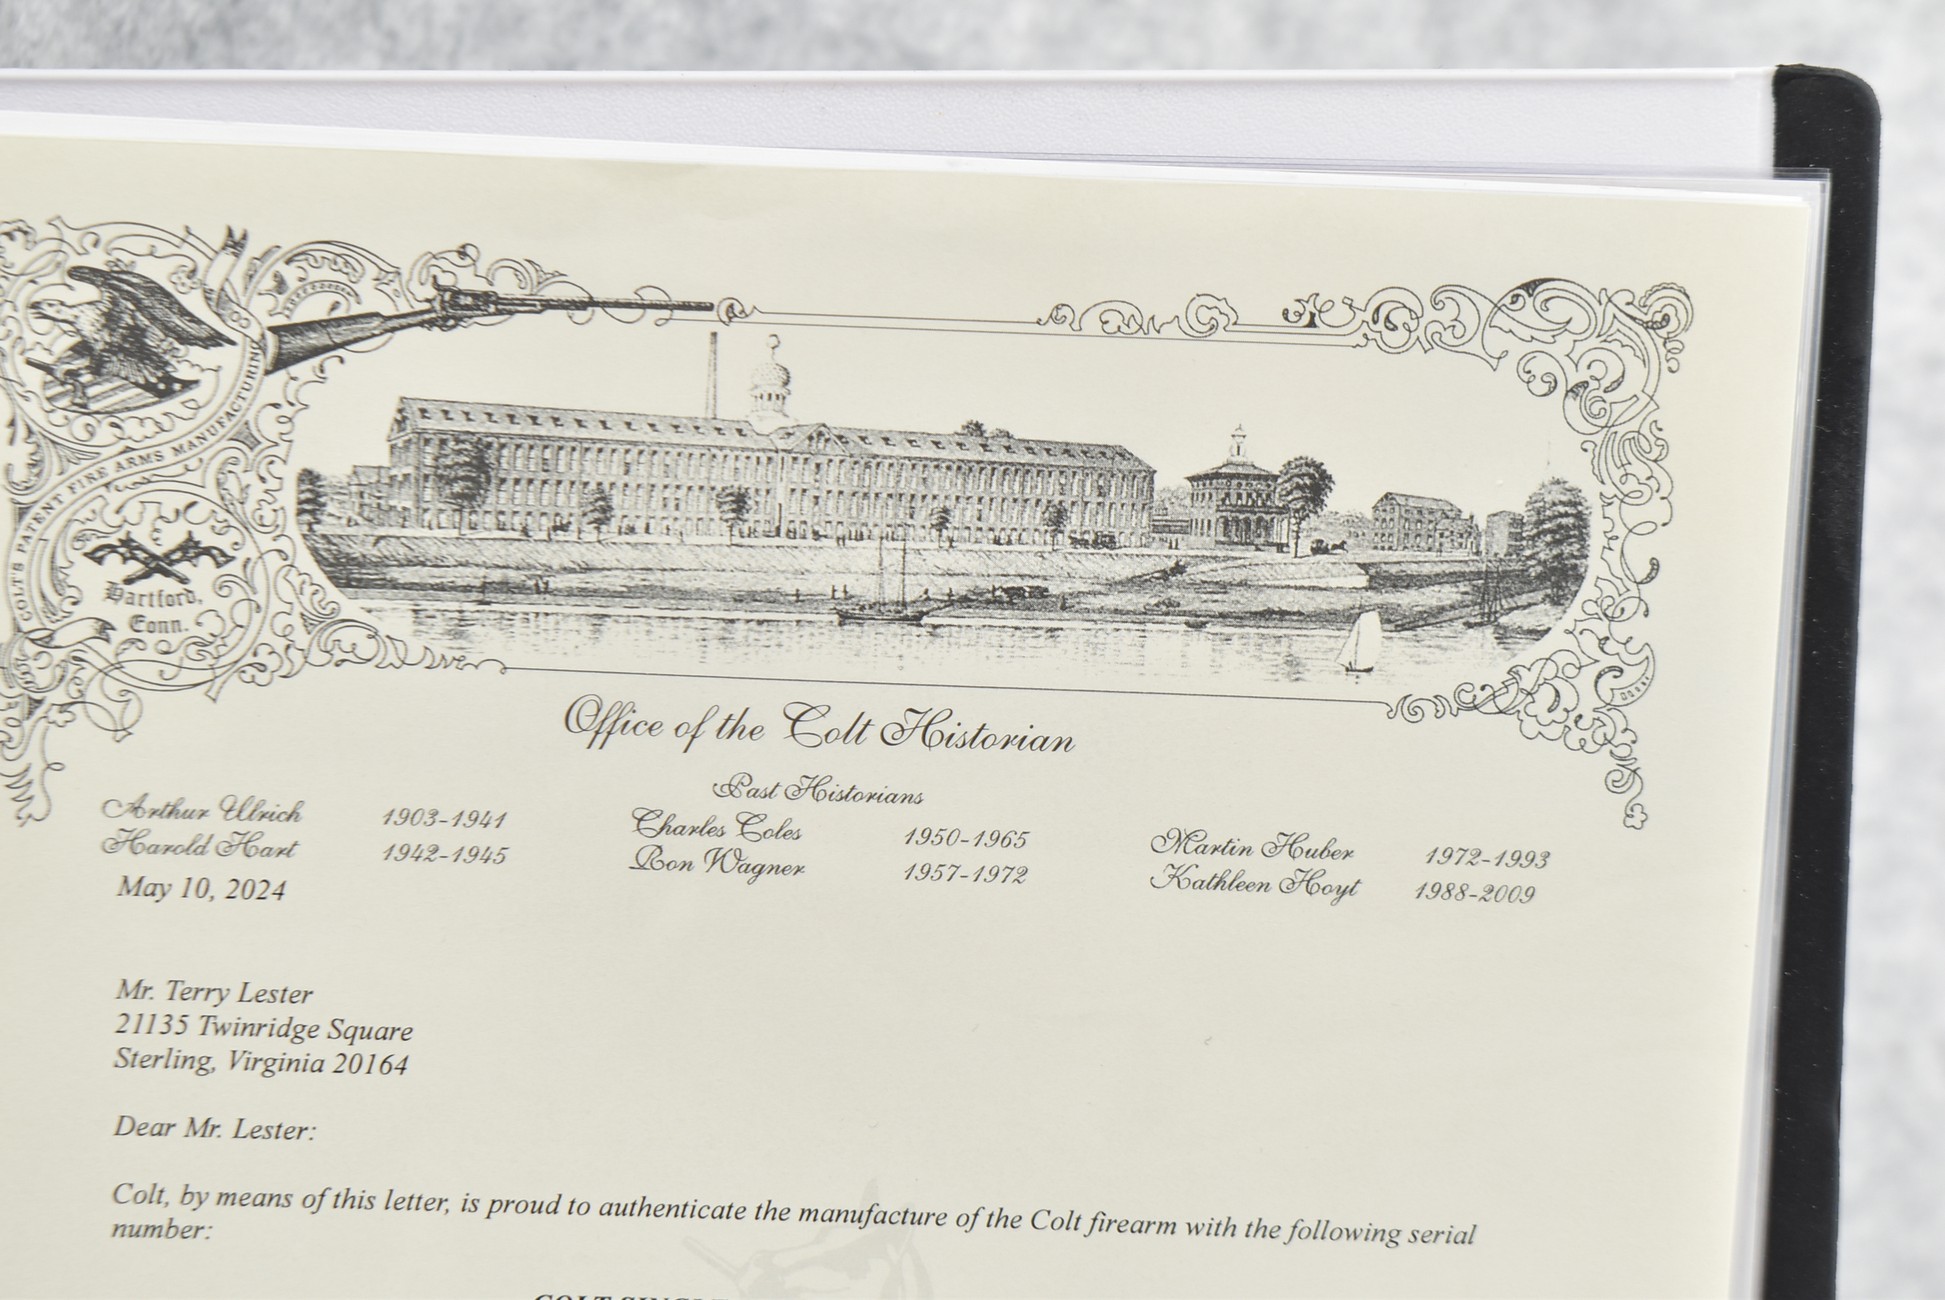 COLT'S PATENT FIRE ARMS MANUFACTURING CO
Hartford,
Conn.
Office of the Colt Historian
Past Historians
Arthur Ulrich 1903-1941 Charles Coles 1950-1965 Martin Huber 1972-1993
Harold Hart 1942-1945 Ron Wagner 1957-1972 Kathleen Hoyt 1988-2009
May 10, 2024
Mr. Terry Lester
21135 Twinridge Square
Sterling, Virginia 20164
Dear Mr. Lester:
Colt, by means of this letter, is proud to authenticate the manufacture of the Colt firearm with the following serial
number: